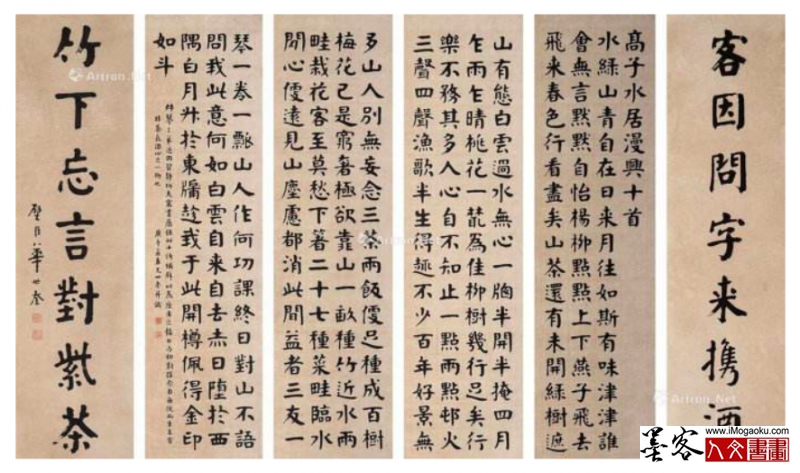 客因問字来携酒
高子水居漫興十首
水綠山青自在日来月往如斯有味津津誰
會無言黙黙自怡楊柳點點上下燕子飛去
飛来春色行看盡矣山茶還有未開綠樹遮
山有態白雲過水無心一牕半開半掩四月
乍雨乍晴桃花一為佳柳樹幾行足矣行
樂不務其多人心自不知止一點兩點邨火
三聲四聲漁歌半生得趣不少百年好景無
多山人別無妄念三茶兩飯便足種成百樹
梅花已是窮奢極欲靠山一畝種竹近水兩
畦栽花客至莫愁下箸二十七種菜畦臨水
閒心便遠見山塵慮都消此間益者三友一
琴一卷一瓢山人作何功課終日對山不語
問我此意何如白雲自来自去赤日墮於西
隅白月升於東牖趁我于此開樽佩得金印
如斗
竹下忘言對紫茶
璧臣華世奎
Artron.Net
墨客
www.iMogaoku.com
人文書畫